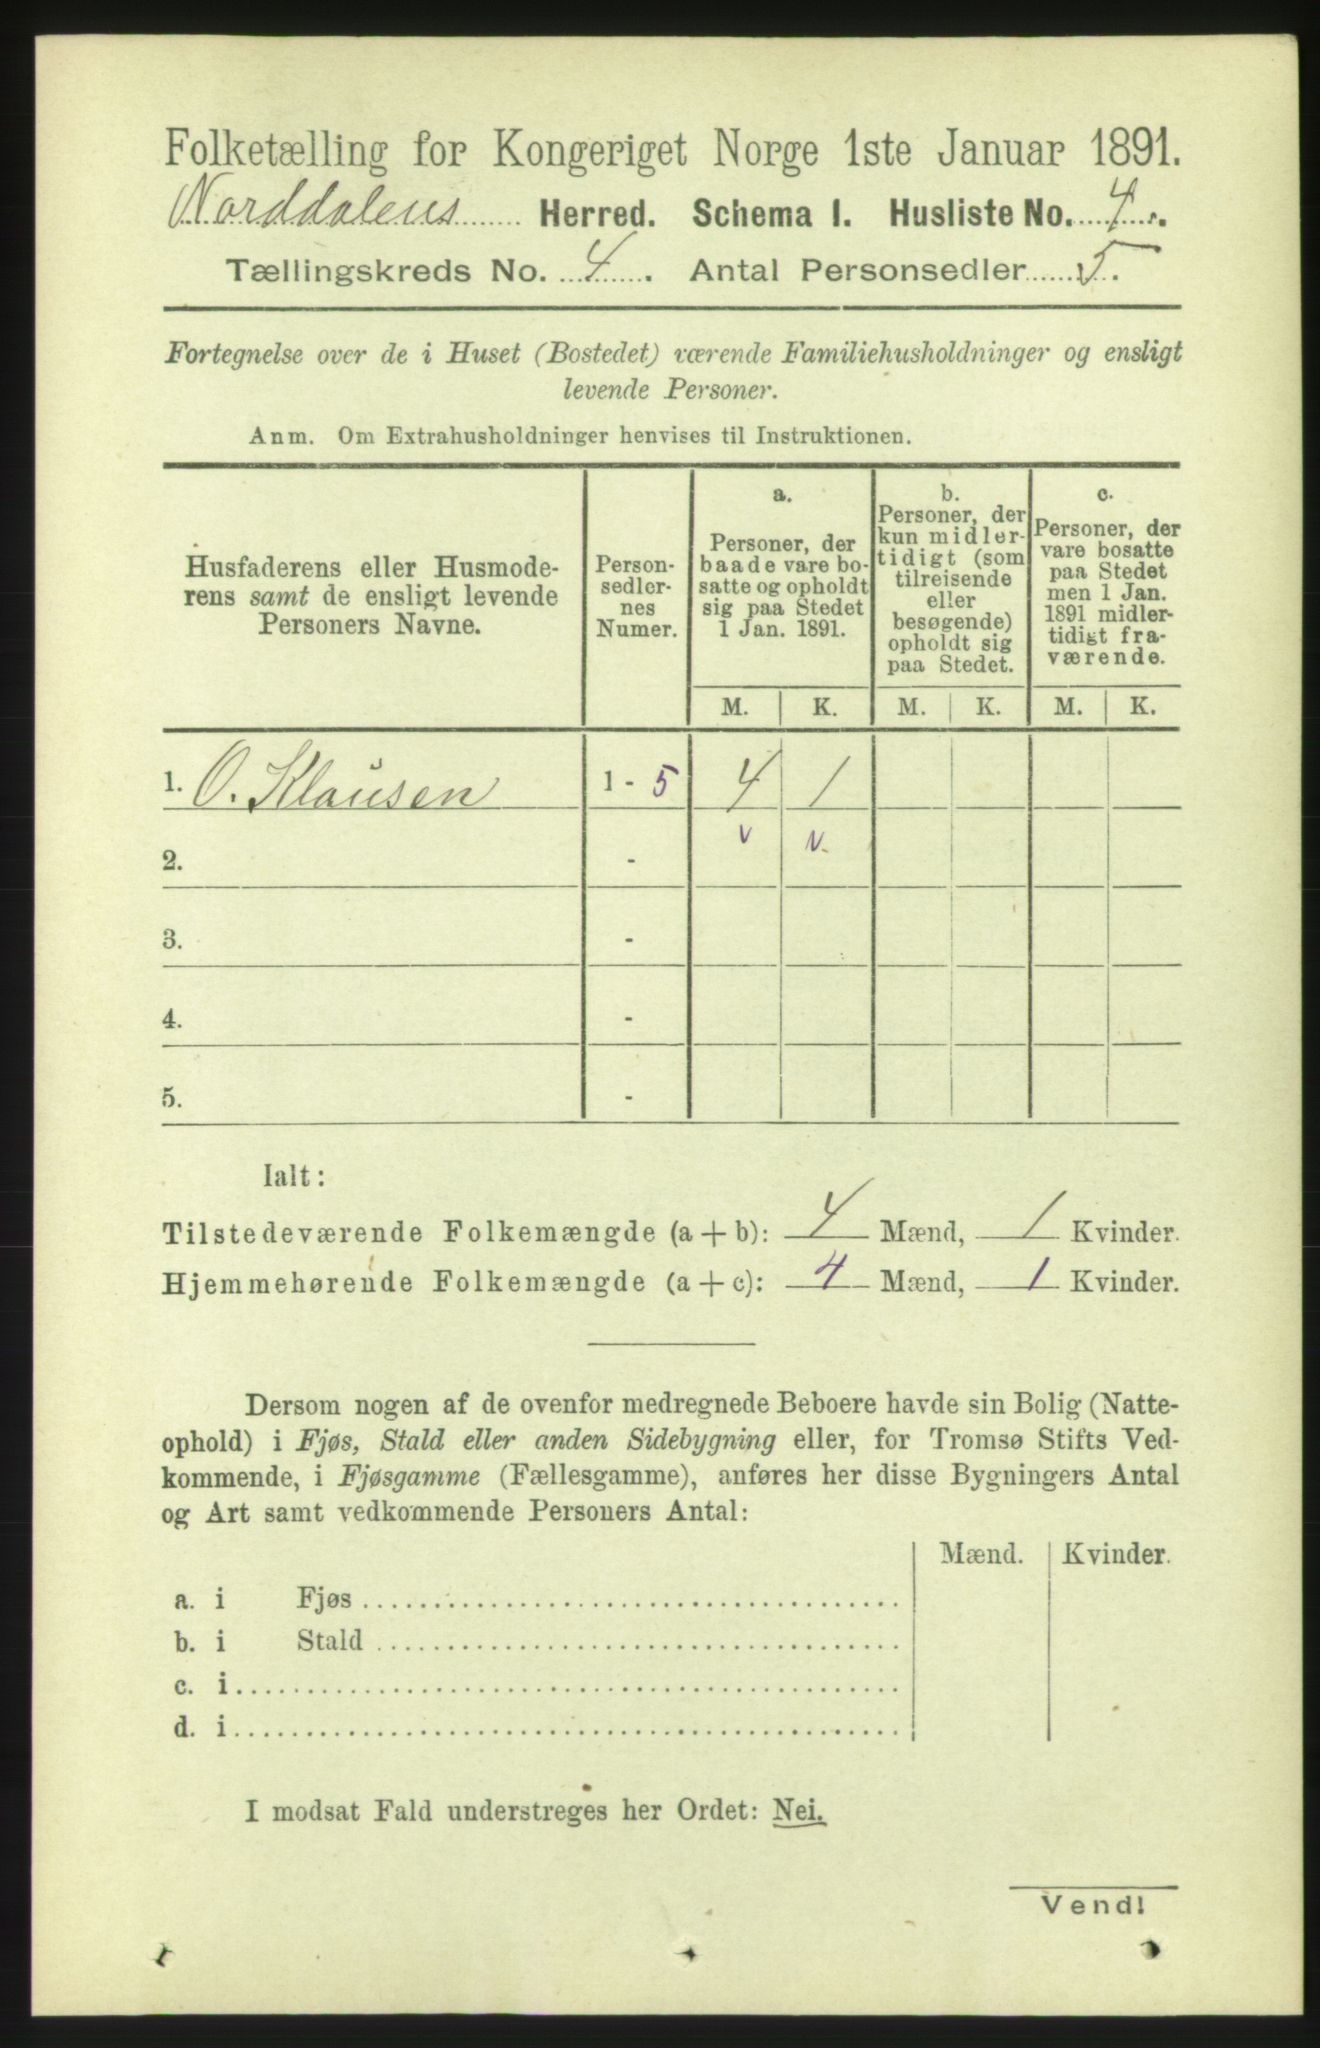 Folketælling for Kongeriget Norge 1ste Januar 1891.
Norddalens Herred. Schema I. Husliste No. 4.
Tællingskreds No. 4. Antal Personsedler 5.
Fortegnelse over de i Huset (Bostedet) værende Familiehusholdninger og ensligt
levende Personer.
Anm. Om Extrahusholdninger henvises til Instruktionen.
Husfaderens eller Husmode-
rens samt de ensligt levende
Personers Navne.
Person-
sedler-
nes
Numer.
a.
Personer, der
baade vare bo-
satte og opholdt
sig paa Stedet
1 Jan. 1891.
b.
Personer, der
kun midler-
tidigt (som
tilreisende
eller
besøgende)
opholdt sig
paa Stedet.
c.
Personer, der
vare bosatte
paa Stedet
men 1 Jan.
1891 midler-
tidigt fra-
værende.
M. K. M. K. M. K.
1. O. Klausen 1 - 5 4 1
v v.
2. -
3. -
4. -
5. -
Ialt:
Tilstedeværende Folkemængde (a + b): 4 Mænd, 1 Kvinder.
Hjemmehørende Folkemængde (a + c): 4 Mænd, 1 Kvinder.
Dersom nogen af de ovenfor medregnede Beboere havde sin Bolig (Natte-
ophold) i Fjøs, Stald eller anden Sidebygning eller, for Tromsø Stifts Ved-
kommende, i Fjøsgamme (Fællesgamme), anføres her disse Bygningers Antal
og Art samt vedkommende Personers Antal:
Mænd. Kvinder.
a. i Fjøs
b. i Stald
c. i
d. i
I modsat Fald understreges her Ordet: Nei.
Vend!